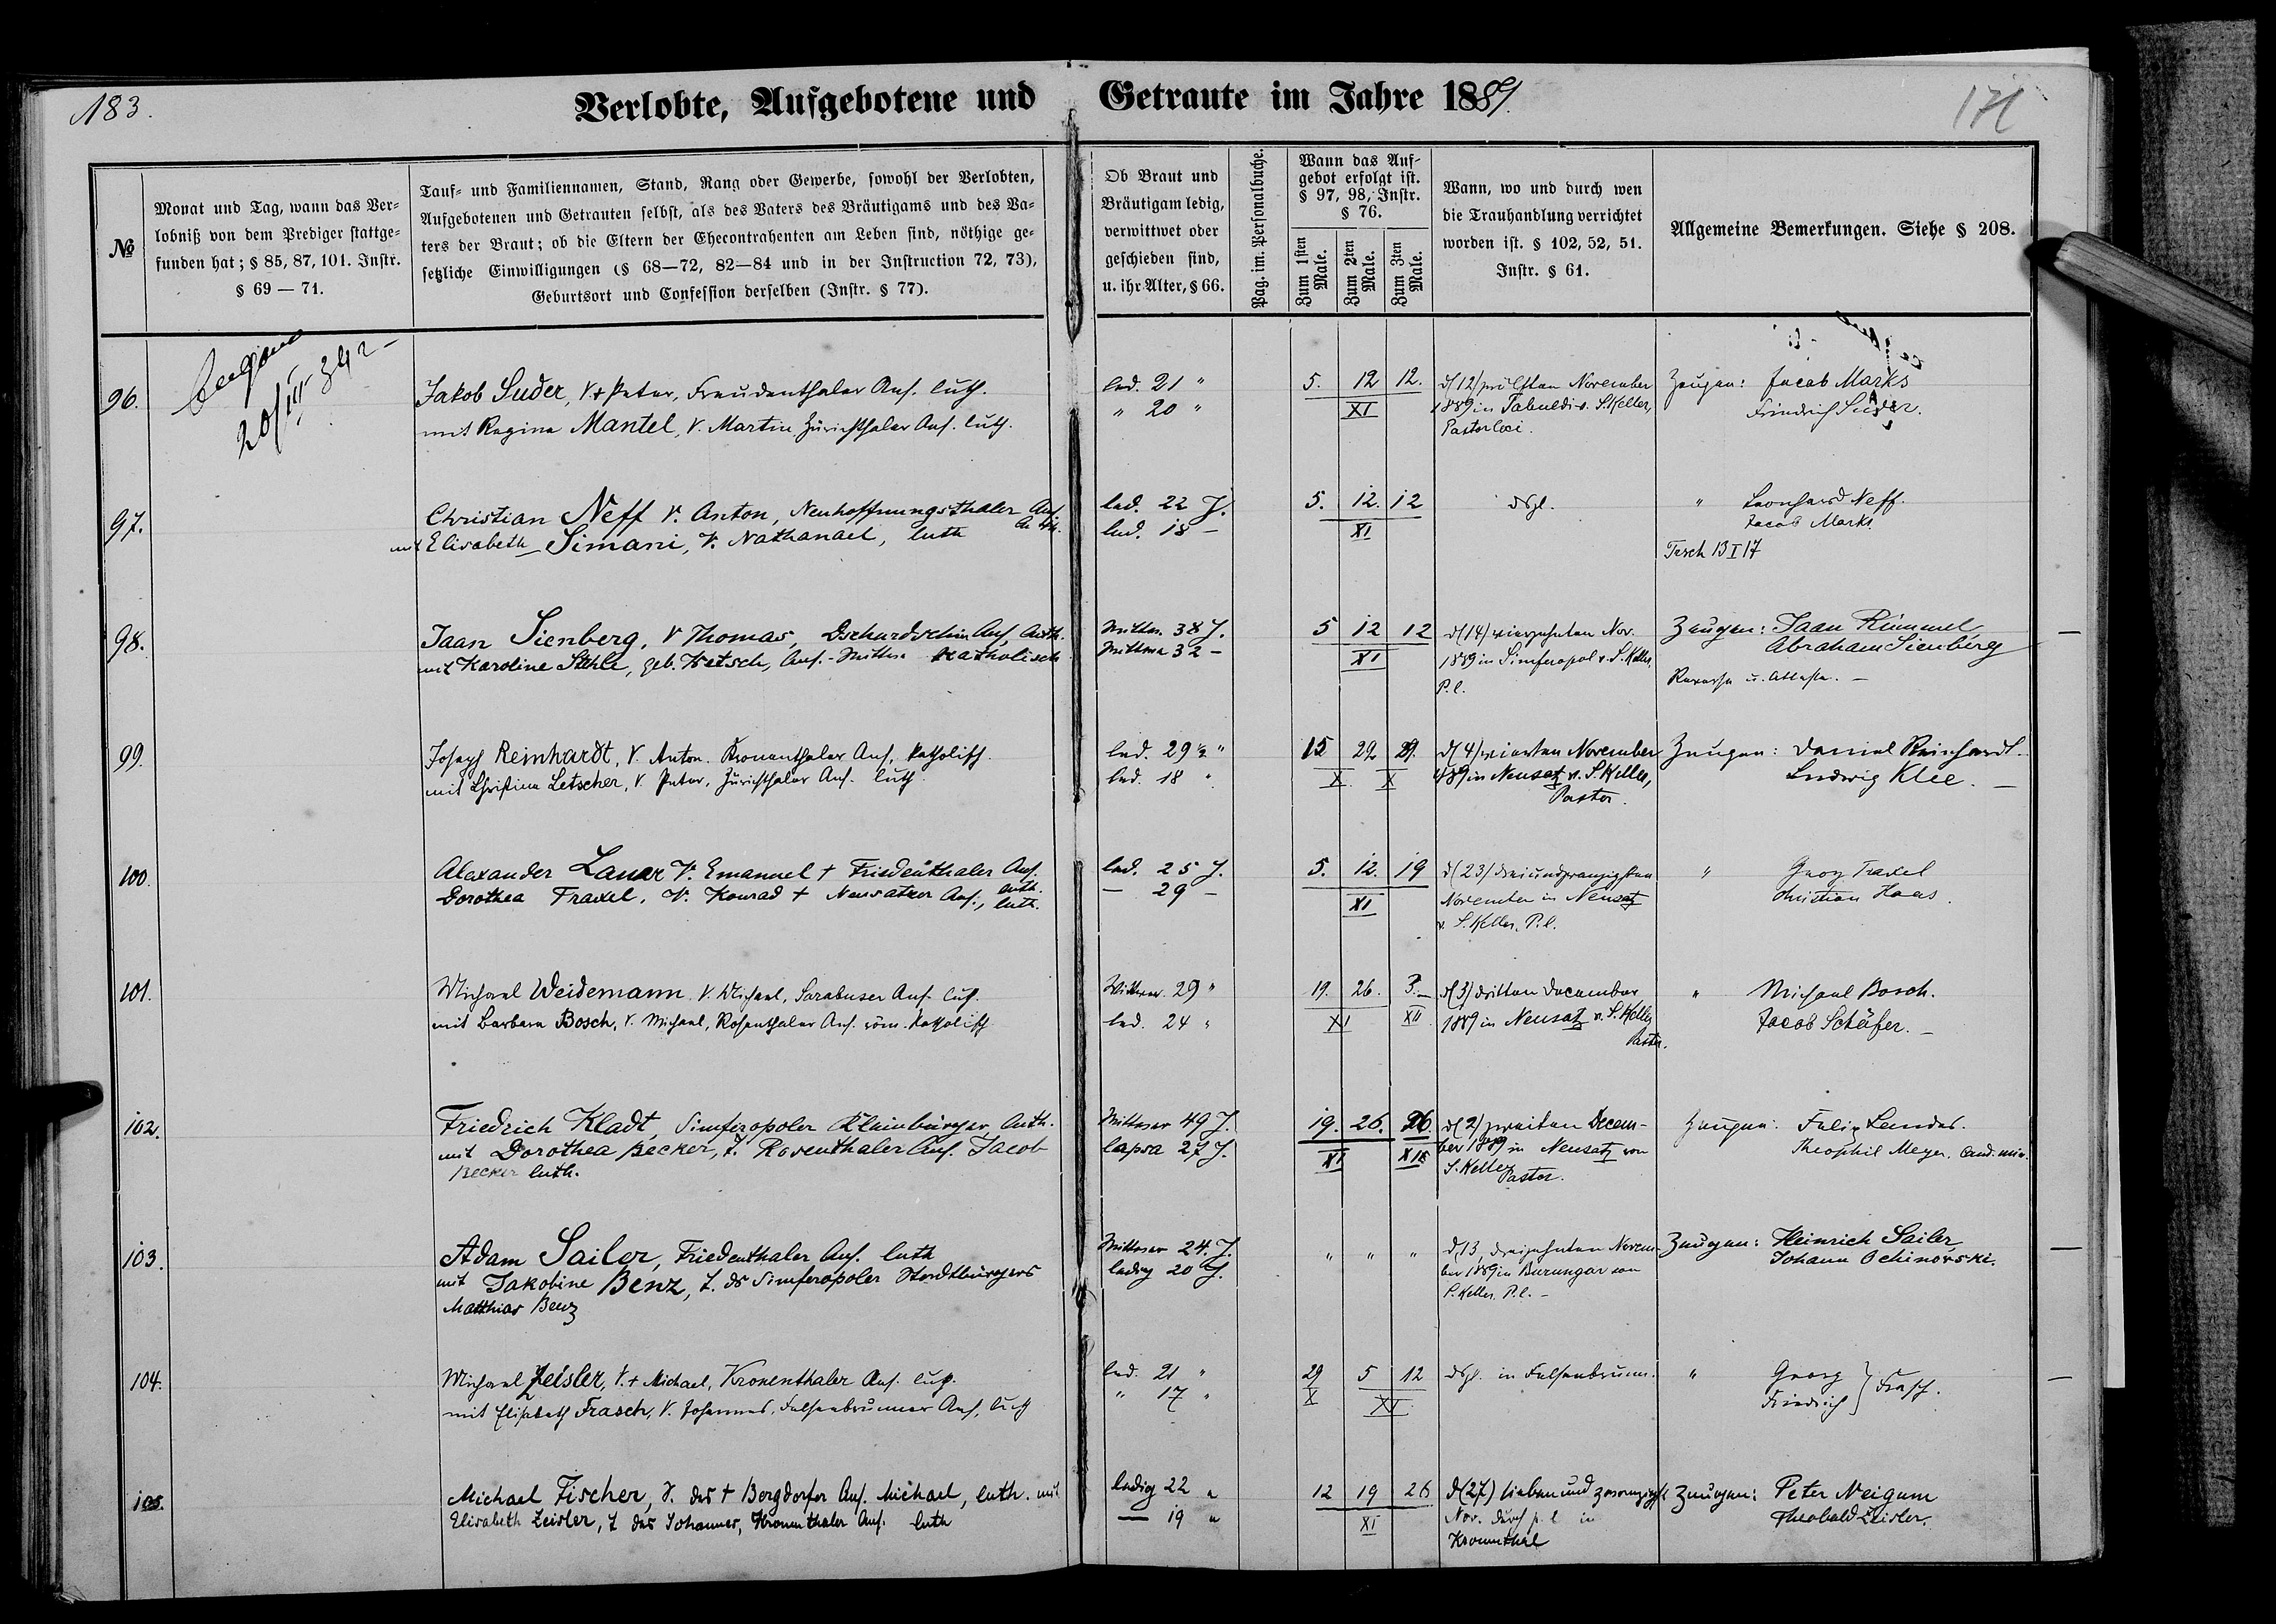 183.
Verlobte, Aufgebotene und Getraute im Jahre 1889.
171
№
Monat und Tag, wann das Ver-
lobniß von dem Prediger stattge-
funden hat; § 85, 87, 101. Instr.
§ 69 — 71.
Tauf- und Familiennamen, Stand, Rang oder Gewerbe, sowohl der Verlobten,
Aufgebotenen und Getrauten selbst, als des Vaters des Bräutigams und des Va-
ters der Braut; ob die Eltern der Ehecontrahenten am Leben sind, nöthige ge-
setzliche Einwilligungen (§ 68—72, 82—84 und in der Instruction 72, 73),
Geburtsort und Confession derselben (Instr. § 77).
Ob Braut und
Bräutigam ledig,
verwittwet oder
geschieden sind,
u. ihr Alter, § 66.
Pag. im. Personalbuche.
Wann das Auf-
gebot erfolgt ist.
§ 97, 98, Instr.
§ 76.
Zum 1sten
Male.
Zum 2ten
Male.
Zum 3ten
Male.
Wann, wo und durch wen
die Trauhandlung verrichtet
worden ist. § 102, 52, 51.
Instr. § 61.
Allgemeine Bemerkungen. Siehe § 208.
96.
20/III 34
Jakob Suder, V. + Peter, Freudenthaler Ans. luth.
mit Regina Mantel, V. Martin, Zürichthaler Ans. luth.
led. 21 "
" 20 "
5. 12 12.
XI
d (12) zwölften November
1889 in Tabuldi v. S. Keller,
Pastor loci.
Zeugen: Jacob Marks
Friedrich Suder.
97.
Christian Neff V. Anton, Neuhoffnungsthaler Ans.
mit Elisabeth Simani, V. Nathanael, luth
led. 22 J.
led. 18 –
5. 12. 12
XI
dsgl.
" Leonhard Neff.
Jacob Marks.
Tesch 13 I 17
98.
Jaan Sienberg, V Thomas, Dschurdschin Ans, luth.
mit Karoline Stihle, geb. Ketsch, Ans.-Wittwe katholisch
Wittw. 38 J.
Wittwe 32 –
5 12 12
XI
d (14) vierzehnten Nov.
1889 in Simferopol v. S. Keller,
P. l.
Zeugen: Jaan Rümmel
Abraham Sienberg
Reverse u. Atteste. –
99.
Joseph Reinhardt, V. Anton. Kronenthaler Ans, katholisch.
mit Christina Letscher, V. Peter, Zürichthaler Ans. luth.
led. 29 ½ "
led. 18 "
15 22 29.
X X
d (4) vierten November
1889 in Neusatz v. S. Keller,
Pastor.
Zeugen: Daniel Reinhardt.
Ludwig Klee. –
100.
Alexander Lauer V. Emanuel + Friedenthaler Ans.
luth.
Dorothea Fraxel, V. Konrad + Neusatzer Ans., luth.
led. 25 J.
– 29 –
5. 12. 19
XI
d (23) dreiundzwanzigsten
November in Neusatz
v. S. Keller, P. l.
" Georg Fraxel
Christian Haas.
101.
Michael Weidemann. V. Michael, Sarabuser Ans. luth.
mit Barbara Bosch, V. Michael, Rosenthaler Ans. röm. katholisch
Wittwer 29 "
led. 24 "
19. 26. 3.–
XI XII
d (3) dritten December
1889 in Neusatz v. S. Keller
Pastor.
" Michael Bosch.
Jacob Schäfer. –
102.
Friedrich Kladt, Simferopoler Kleinbürger, luth.
mit Dorothea Becker, T. Rosenthaler Ans. Jacob
Becker luth.
Wittwer 49 J.
lapsa 27 J.
19. 26. 26.
XI XII
d (2) zweiten Decem-
ber 1889 in Neusatz von
S. Keller
Pastor.
Zeugen: Felix Landes.
Theophil Meyer. Cand. min.
103.
Adam Sailer, Friedenthaler Ans. luth
mit Jakobine Benz, T. ds Simferopoler Stadtbürgers
Matthias Benz
Wittwer 24. J.
ledig 20 J.
" " "
d 13, dreizehnten Novem-
ber 1889 in Burungar von
S. Keller. P. l. –
Zeugen: Heinrich Sailer
Johann Ochinovski.
104.
Michael Zeisler, V. + Michael, Kronenthaler Ans. luth.
mit Elisabeth Frasch, V. Johannes, Felsenbrunner Ans, luth
led. 21 "
" 17 "
29 5 12
X XI
dsgl. in Felsenbrunn.
" Georg
Friedrich } Frasch.
105.
Michael Fischer, V. des + Bergdorfer Ans. Michael, luth. mit
Elisabeth Zeisler, T des Johannes, Kronenthaler Ans. luth
ledig 22 "
— 19 "
12 19 26
XI
d (27) sieben und zwanzigst
Nov. durch p. l in
Kronenthal
Zeugen: Peter Neigum
Theobald Zeisler.